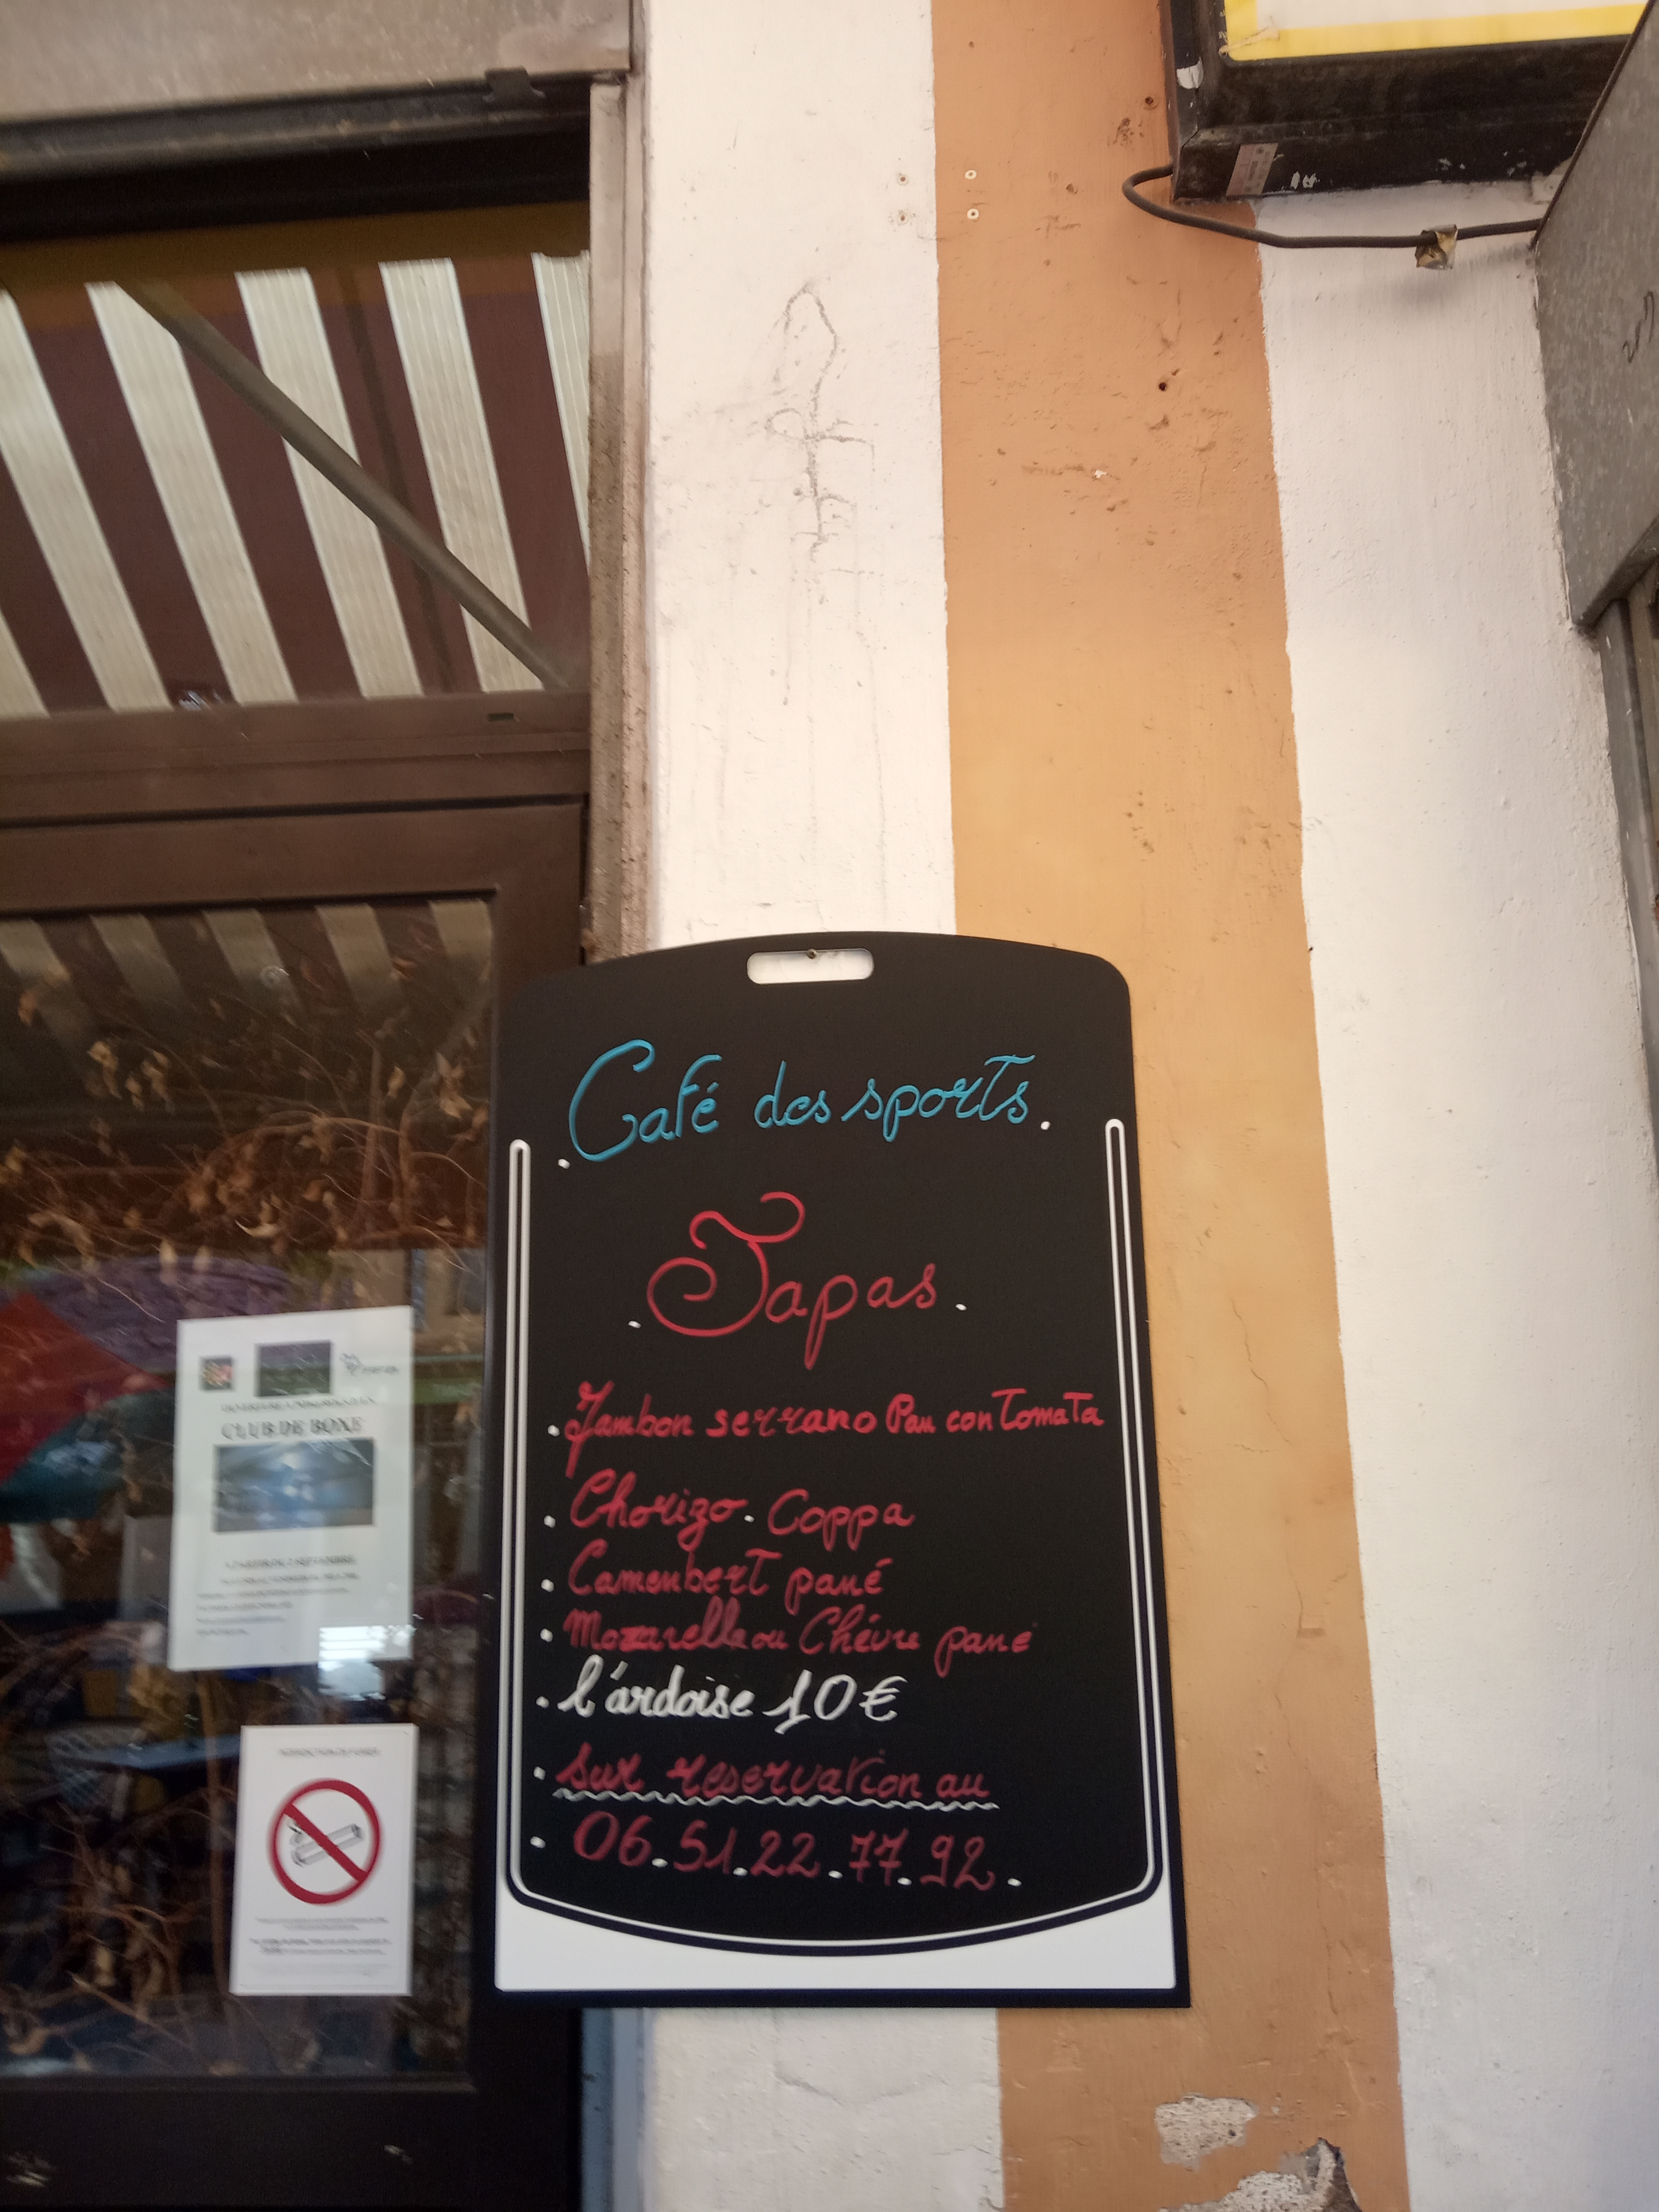 Café des sports.
Tapas.
Jambon serrano Pan con Tomata
Chorizo. Coppa
Camenbert pané
Mozarella ou Chévre pané
l'ardoise 10€
Sur reservation au
06.51.22.77.92.
CLUB DE BOXE